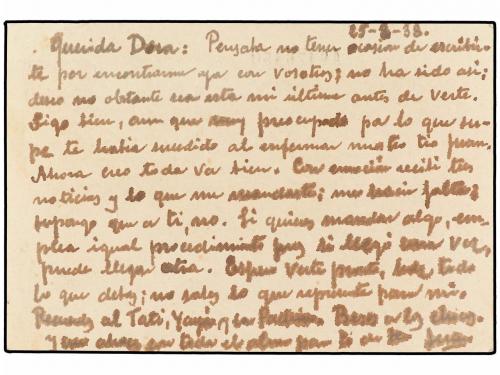 25-8-38.
Querida Dora: Pensaba no tener ocasión de escribir-
te por encontrarme ya con vosotros; no ha sido asi;
deseo no obstante sea esta mi última antes de verte.
Sigo bien, aun que muy preocupado por lo que su-
pe te habia sucedido al enfermar nuestro tio Juan.
Ahora creo todo va bien. Con emoción recibi tus
noticias y lo que me mandaste; me hacia falta;
supongo que a ti, no. Si quieres mandar algo, em-
plea igual procedimiento pues si llegó una vez,
puede llegar otra. Espero verte pronto, todo
lo que debes; no sabes lo que represente para mi.
Recuerdos al Tati, y su Beso a los chicos.
Y con toda el alma para ti de tu Juan